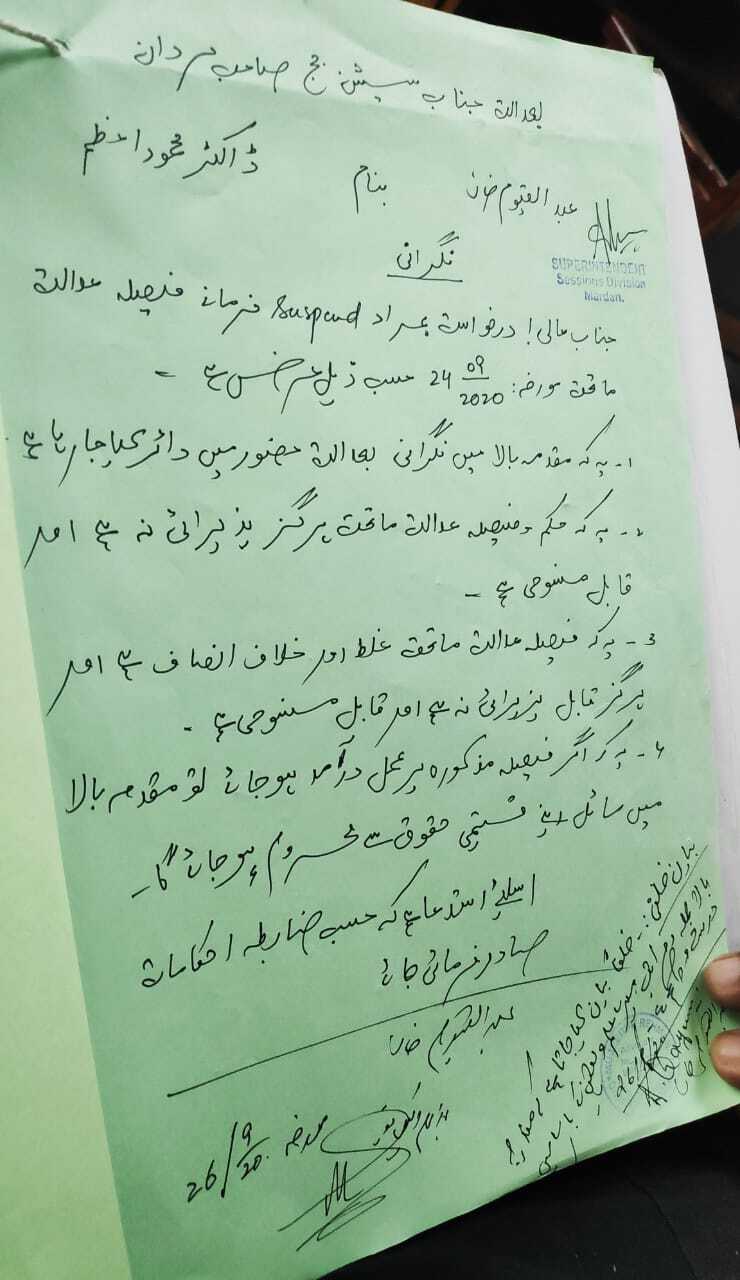 بعدالت جناب سیشن جج صاحب مردان
عبدالقیوم خان بنام ڈاکٹر محمود اعظم
SUPERINTENDENT
Sessions Division
Mardan.
نگرانی
جناب عالی! درخواست بمراد Suspend فرمانے فیصلہ عدالت
ماتحت مورخہ: 24 09/2020 حسب ذیل عرض ہے -
1- یہ کہ مقدمہ بالا میں نگرانی بعدالت حضور میں دائر کیا جا رہا ہے
2- یہ کہ حکم و فیصلہ عدالت ماتحت ہرگز پذیرائی نہ ہے اور
قابل منسوخی ہے -
3- یہ کہ فیصلہ عدالت ماتحت غلط اور خلاف انصاف ہے اور
ہرگز قابل پذیرائی نہ ہے اور قابل منسوخی ہے -
4- یہ کہ اگر فیصلہ مذکورہ پر عمل درآمد ہو جائے تو مقدمہ بالا
میں سائل اپنے قیمتی حقوق سے محروم ہو جائے گا -
اسلئے استدعا ہے کہ حسب ضابطہ احکامات
صادر فرمائی جائے
عبدالقیوم خان
مورخہ 26/9/20
بیان حلفی:- حلفاً بیان کیا جاتا ہے
A. Qayum